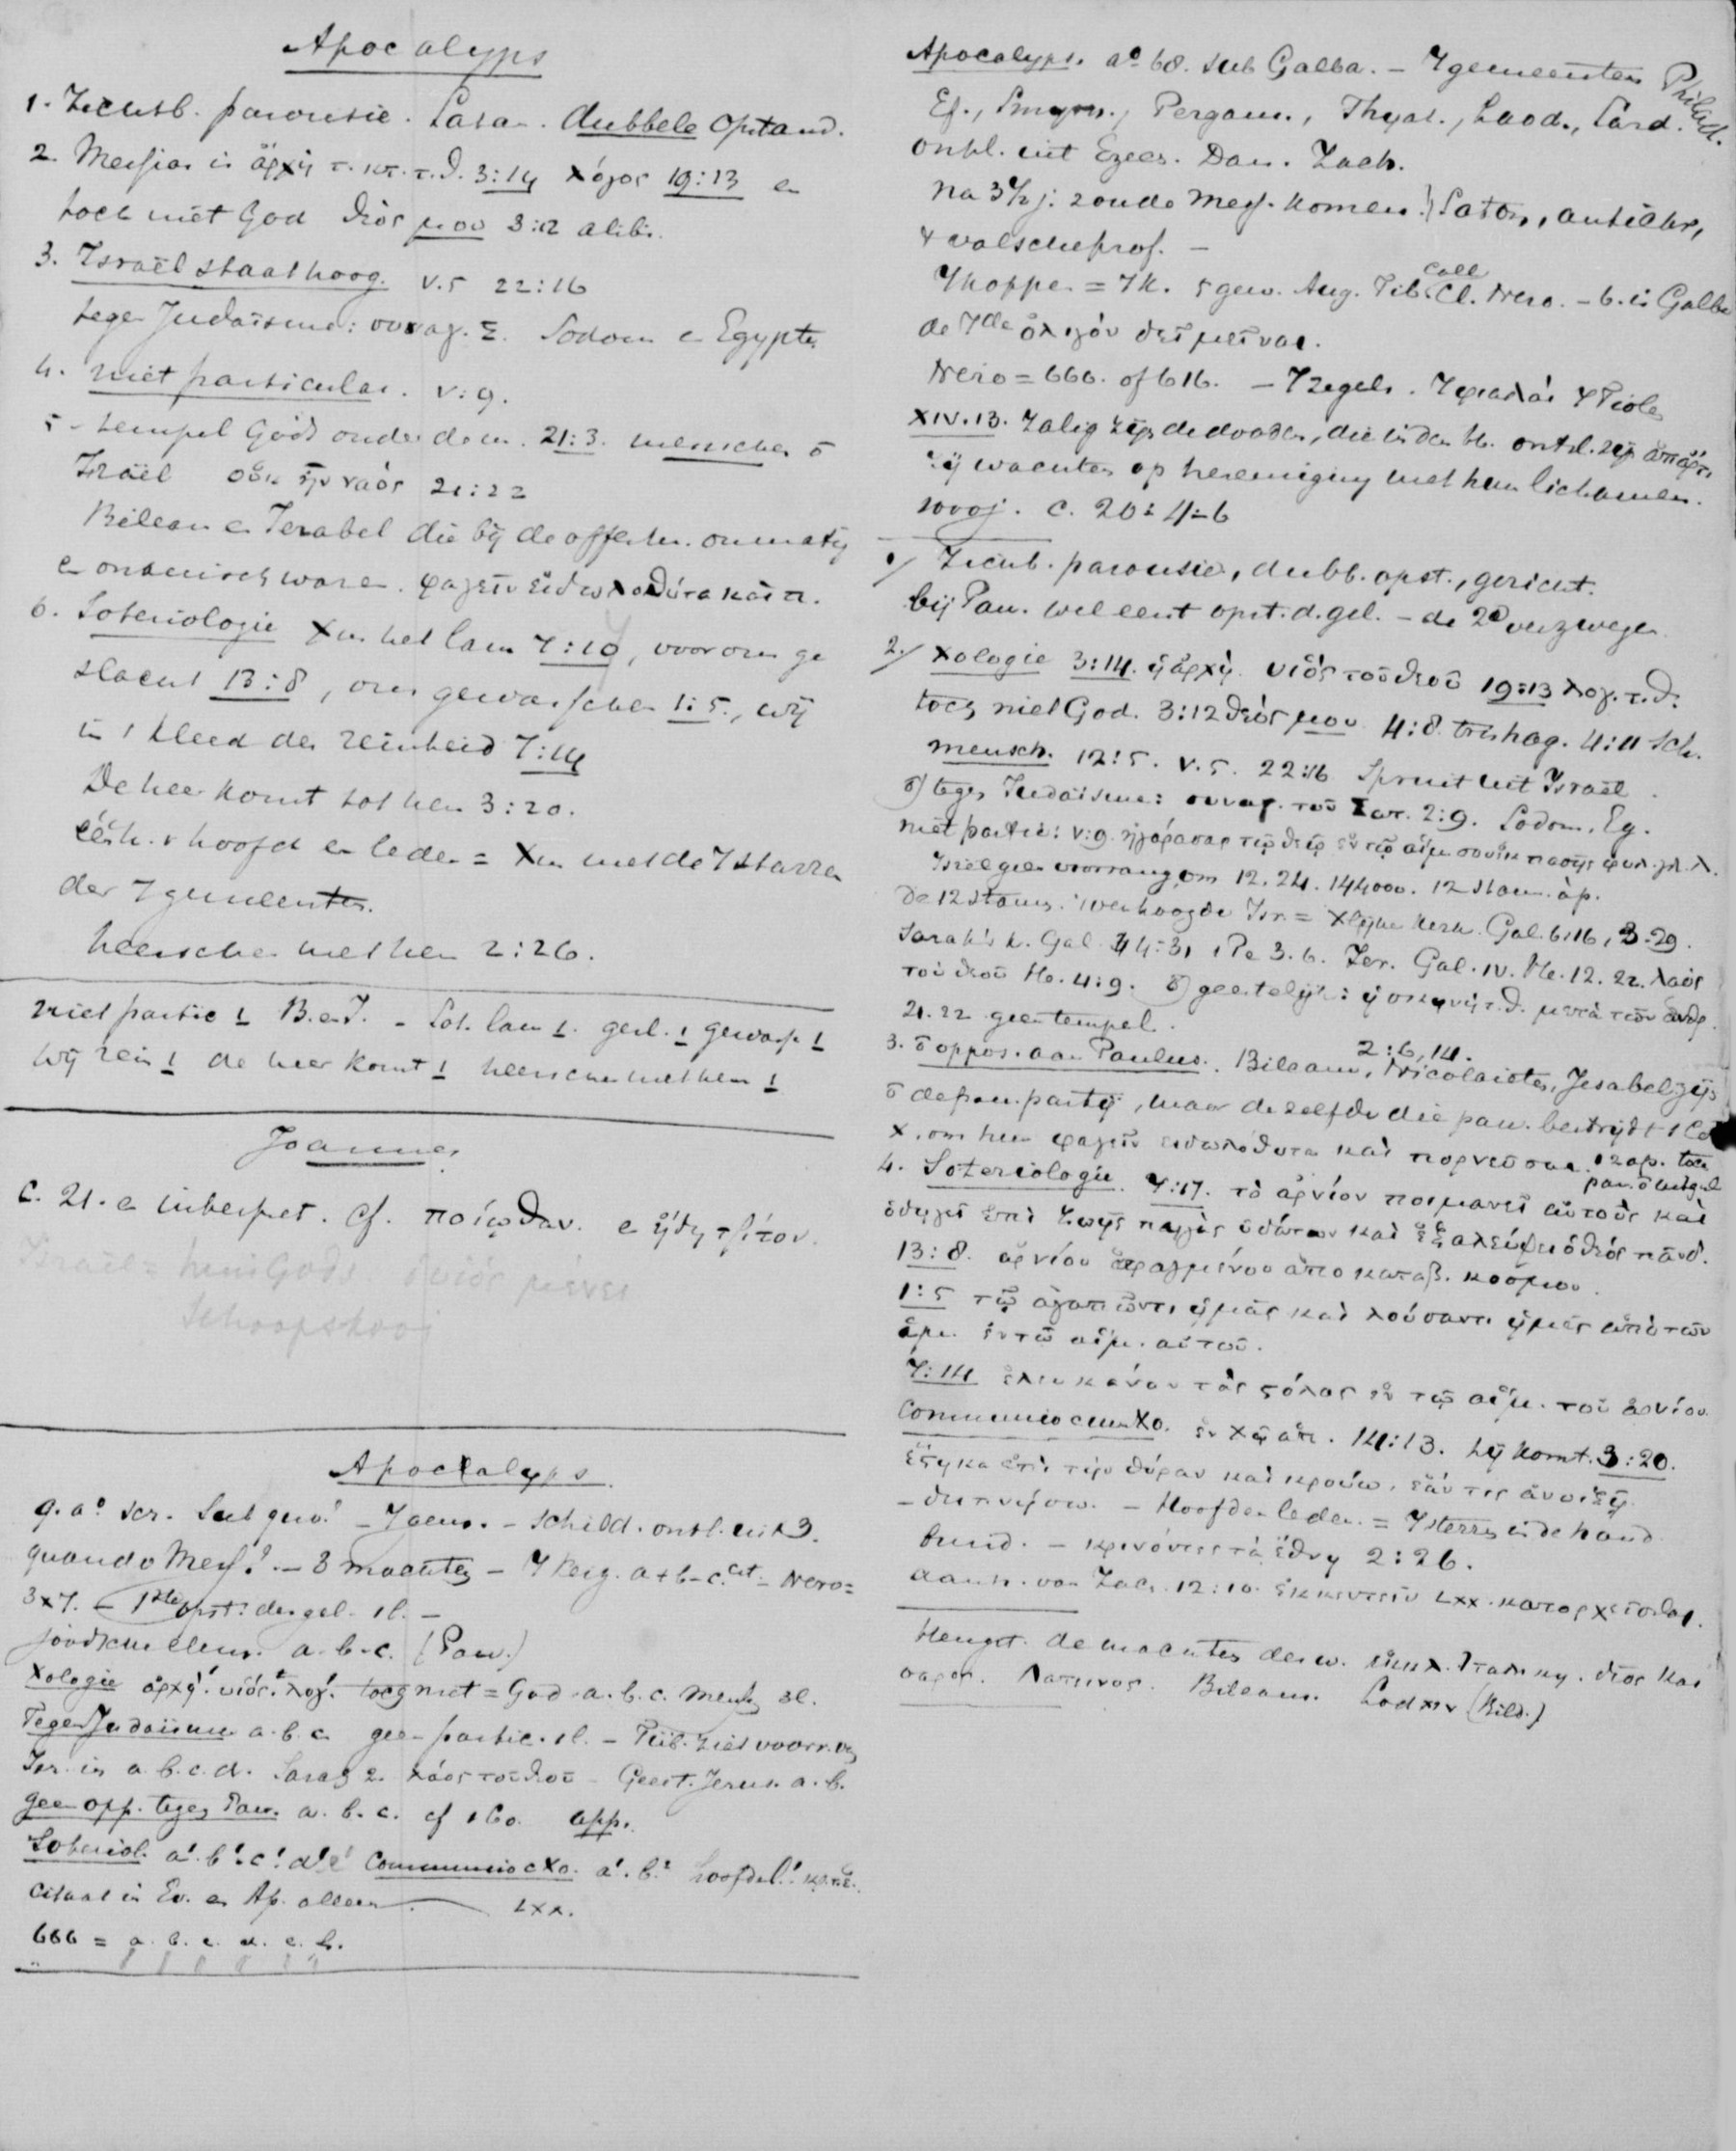 Apocalyps
1. Zichtb. parousie. Satan. dubbele opstand.
2. Messias is ἀρχὴ τ. κτ. τ. θ. 3:14 λόγος 19:13 en
toch niet God θεός μου 3:12 alibi.
3. Israël staat hoog. v.5 22:16
tegen Judaïsme: συναγ. Σ. Sodom en Egypte
4. niet particular. v:9.
5. tempel Gods onder de m. 21:3. menschen ō
Israël οὐκ ναὸς 21:22
Bileam en Jezabel die bij de offerm. onmatig
en onkuisch waren. φαγεῖν εἰδωλοθύτα καὶ π.
6. Soteriologie Xus het lam 7:10, voor ons ge
slacht 13:8, ons gewasschen 1:5, wij
in 't kleed der reinheid 7:14
De heer komt tot hen 3:20.
één. v hoofd en leden = Xus met de 7 starren
der 7 gemeenten.
heerschen met hen 2:26.
niet partic 1 B. en J. - Sot. lam 1. gesl. 1 gewassch 1
wij rein 1 de heer komt 1 heerschen met hem 1
Joannes
C. 21. e interpret. Cf. e ἤδη τρίτον.
Israël = huis Gods ὁ υἱός μένει
Schaapskooi
Apocalyps
q. a° scr. Sub quo? - 7 gem. - schild. ontl. uit 3.
quando Mess? - 3 machten - 7 keiz. a + b - c. - Nero =
3x7. - 1ste opst: der gel. 1l. -
joodsche elem. a. b. c. (Pau.)
Xologie ἀρχή! υἱός! λόγ! toch niet = God a. b. c. mensch 3l.
Tegen Judaïsme a. b. c. geen partic. 1l. - Tüb. ziet voorr. v.
Isr. in a. b. c. d. Sarah 2. λάος τοῦ θεοῦ - Geest. Jerus. a. b.
geen opp. tegen Pau. a. b. c. cf 1 Co. opp.
Soteriol. a! b! c! d! e! Communio c Xo. a! b!
Citaat in Ev. en Ap. alleen LXX.
666 = a. b. c. d. e. b.
Apocalyps. a° 68. sub Galba. - 7 gemeenten Philad.
Ef., Smyrn., Pergam., Thyat., Laod., Sard.
ontl. uit Ezech. Dan. Zach.
na 3½ j: zoude Mess. komen! Satan, antichr,
& valsche prof. -
7 koppen = 7 k. 5 gew. Aug. Tib. Call Cl. Nero. - 6. is Galba
de 7de ὀλίγον δεῖ μεῖναι.
Nero = 666. of 616. - 7 zegels. 7 φιαλαί
XIV.13. Zalig zijn de dooden, die in den H. ontsl. zijn ἀπάρτι
zij wachten op hereeniging met hun lichamen.
1000 j. c. 20:4-6
1/ Zichtb. parousie, dubb. opst., gericht.
bij Pau. wel eerst opst. d. gel. - de 2e verzwegen.
2./ Xologie 3:14. ἡ ἀρχὴ. υἱός τοῦ θεοῦ 19:13 λογ. τ. θ.
toch niet God. 3:12 θεός μου 4:8. trishag. 4:11 Sch.
mensch. 12:5. v.5. 22:16 Spruit uit Israël.
tegen Judaïsme: συναγ. τοῦ Σατ. 2:9. Sodom. Eg.
niet partic: v:9. ἠγόρασας τῷ θεῷ ἐν τῷ αἵμ. σου ἐκ πασῆς φυλ. γλ. λ.
Israel geen voorrang om 12. 24. 144000. 12 stam. ἀp.
De 12 stamm. verhoogde Isr. = Xlijke kerk. Gal. 6:16, 3:29.
Sarah's k. Gal. 4:31 1 Pe 3.6. Jer. Gal. IV. He. 12. 22. λαός
τοῦ θεοῦ He. 4:9. geestelijk: ἡ σκηνὴ τ. θ. μετὰ τῶν ἀνθρ.
21.22 geen tempel.
3. ō oppos. aan Paulus. Bileam, Nicolaïeten, Jesabel zijn 2:6,14.
ō de pau. partij, maar dezelfde die pau. bestrijdt 1 Co
X. om hun φαγεῖν εἰδωλόθυτα καὶ πορνεῦσαι.
4. Soteriologie. 7:17. τὸ ἀρνίον ποιμανεῖ αὐτοὺς καὶ
ὁδηγεῖ ἐπὶ ζωῆς πηγὰς ὑδάτων καὶ ἐξαλείψει ὁ θεός πᾶν δ.
13:8. ἀρνίου ἐσφαγμένου ἀπο καταβ. κοσμου.
1:5 τῷ ἀγαπῶντι ἡμᾶς καὶ λούσαντι ἡμᾶς ἀπὸ τῶν
ἁμ. ἐν τῷ αἵμ. αὐτοῦ.
7:14 ἐλευκάναν τὰς στόλας ἐν τῷ αἵμ. τοῦ ἀρνίου.
Communio cum Xo. ἐν Xῷ ἀπ. 14:13. hij komt. 3:20.
ἕστηκα ἐπὶ τὴν θύραν καὶ κρούω, ἐάν τις ἀνοίξῃ.
- δειπνήσω. - Hoofd en leden = 7 sterren in de hand.
bund. - κρινόντες τὰ ἔθνη 2:26.
aanh. van Zach. 12:10. ἐκκεντεῖν LXX. κατορχεῖσθαι.
Hengst. de machten der w. Ιταλικη. θεος και
σαρος. Λατεινος. Bileam. Lod XIV (Bild.)